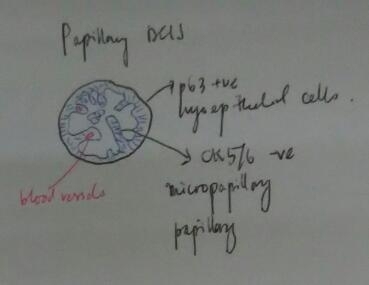 Papillary DCIS
p63 +ve
myoepithelial cells.
CK5/6 -ve
micropapillary
papillary
blood vessels